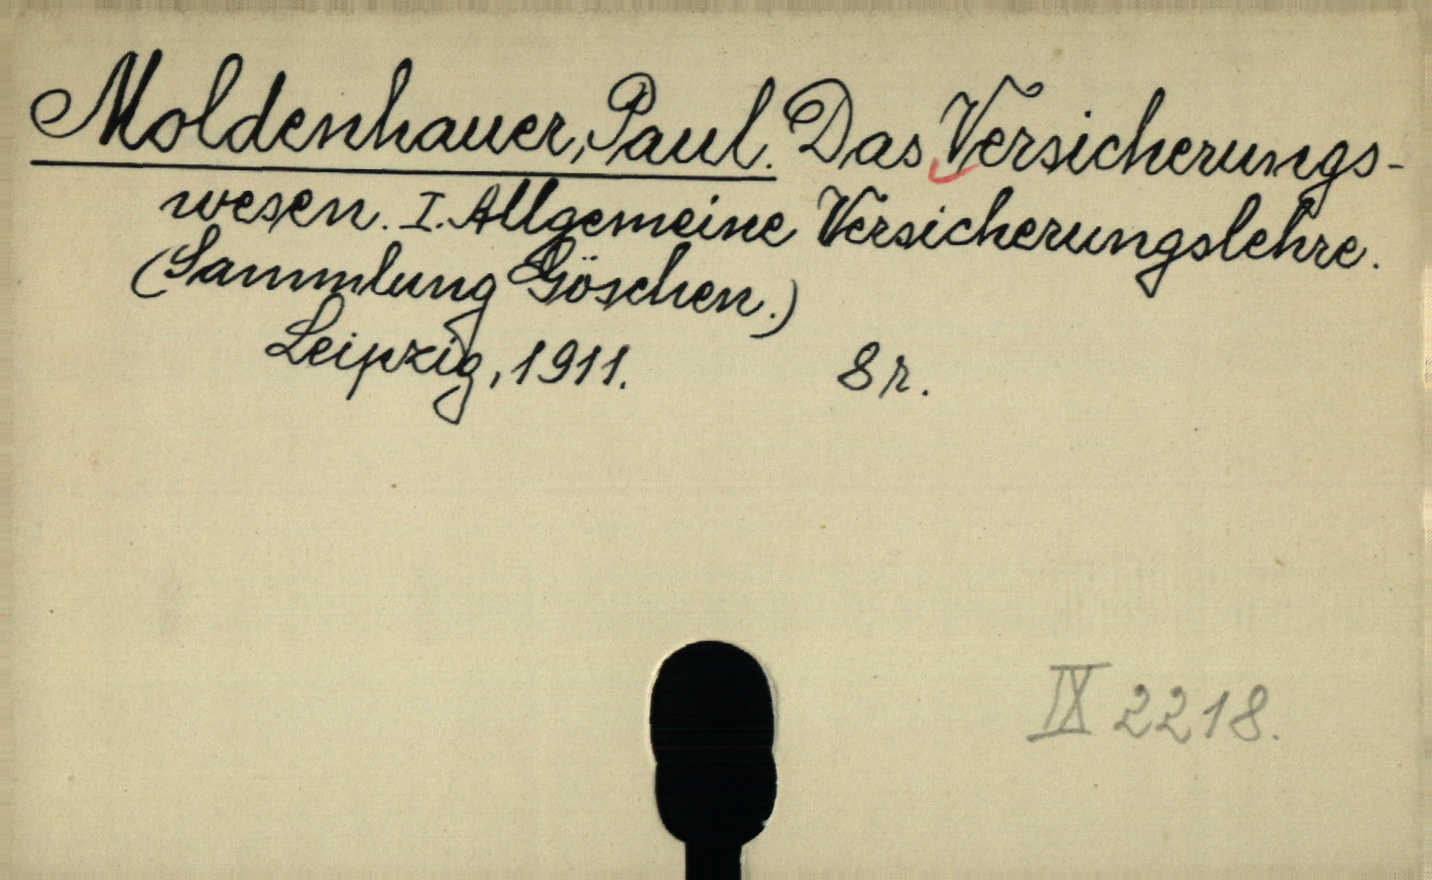 Moldenhauer, Paul. Das Versicherungs-
wesen. I. Allgemeine Versicherungslehre.
(Sammlung Göschen.)
Leipzig, 1911. 8r.
IX 2218.